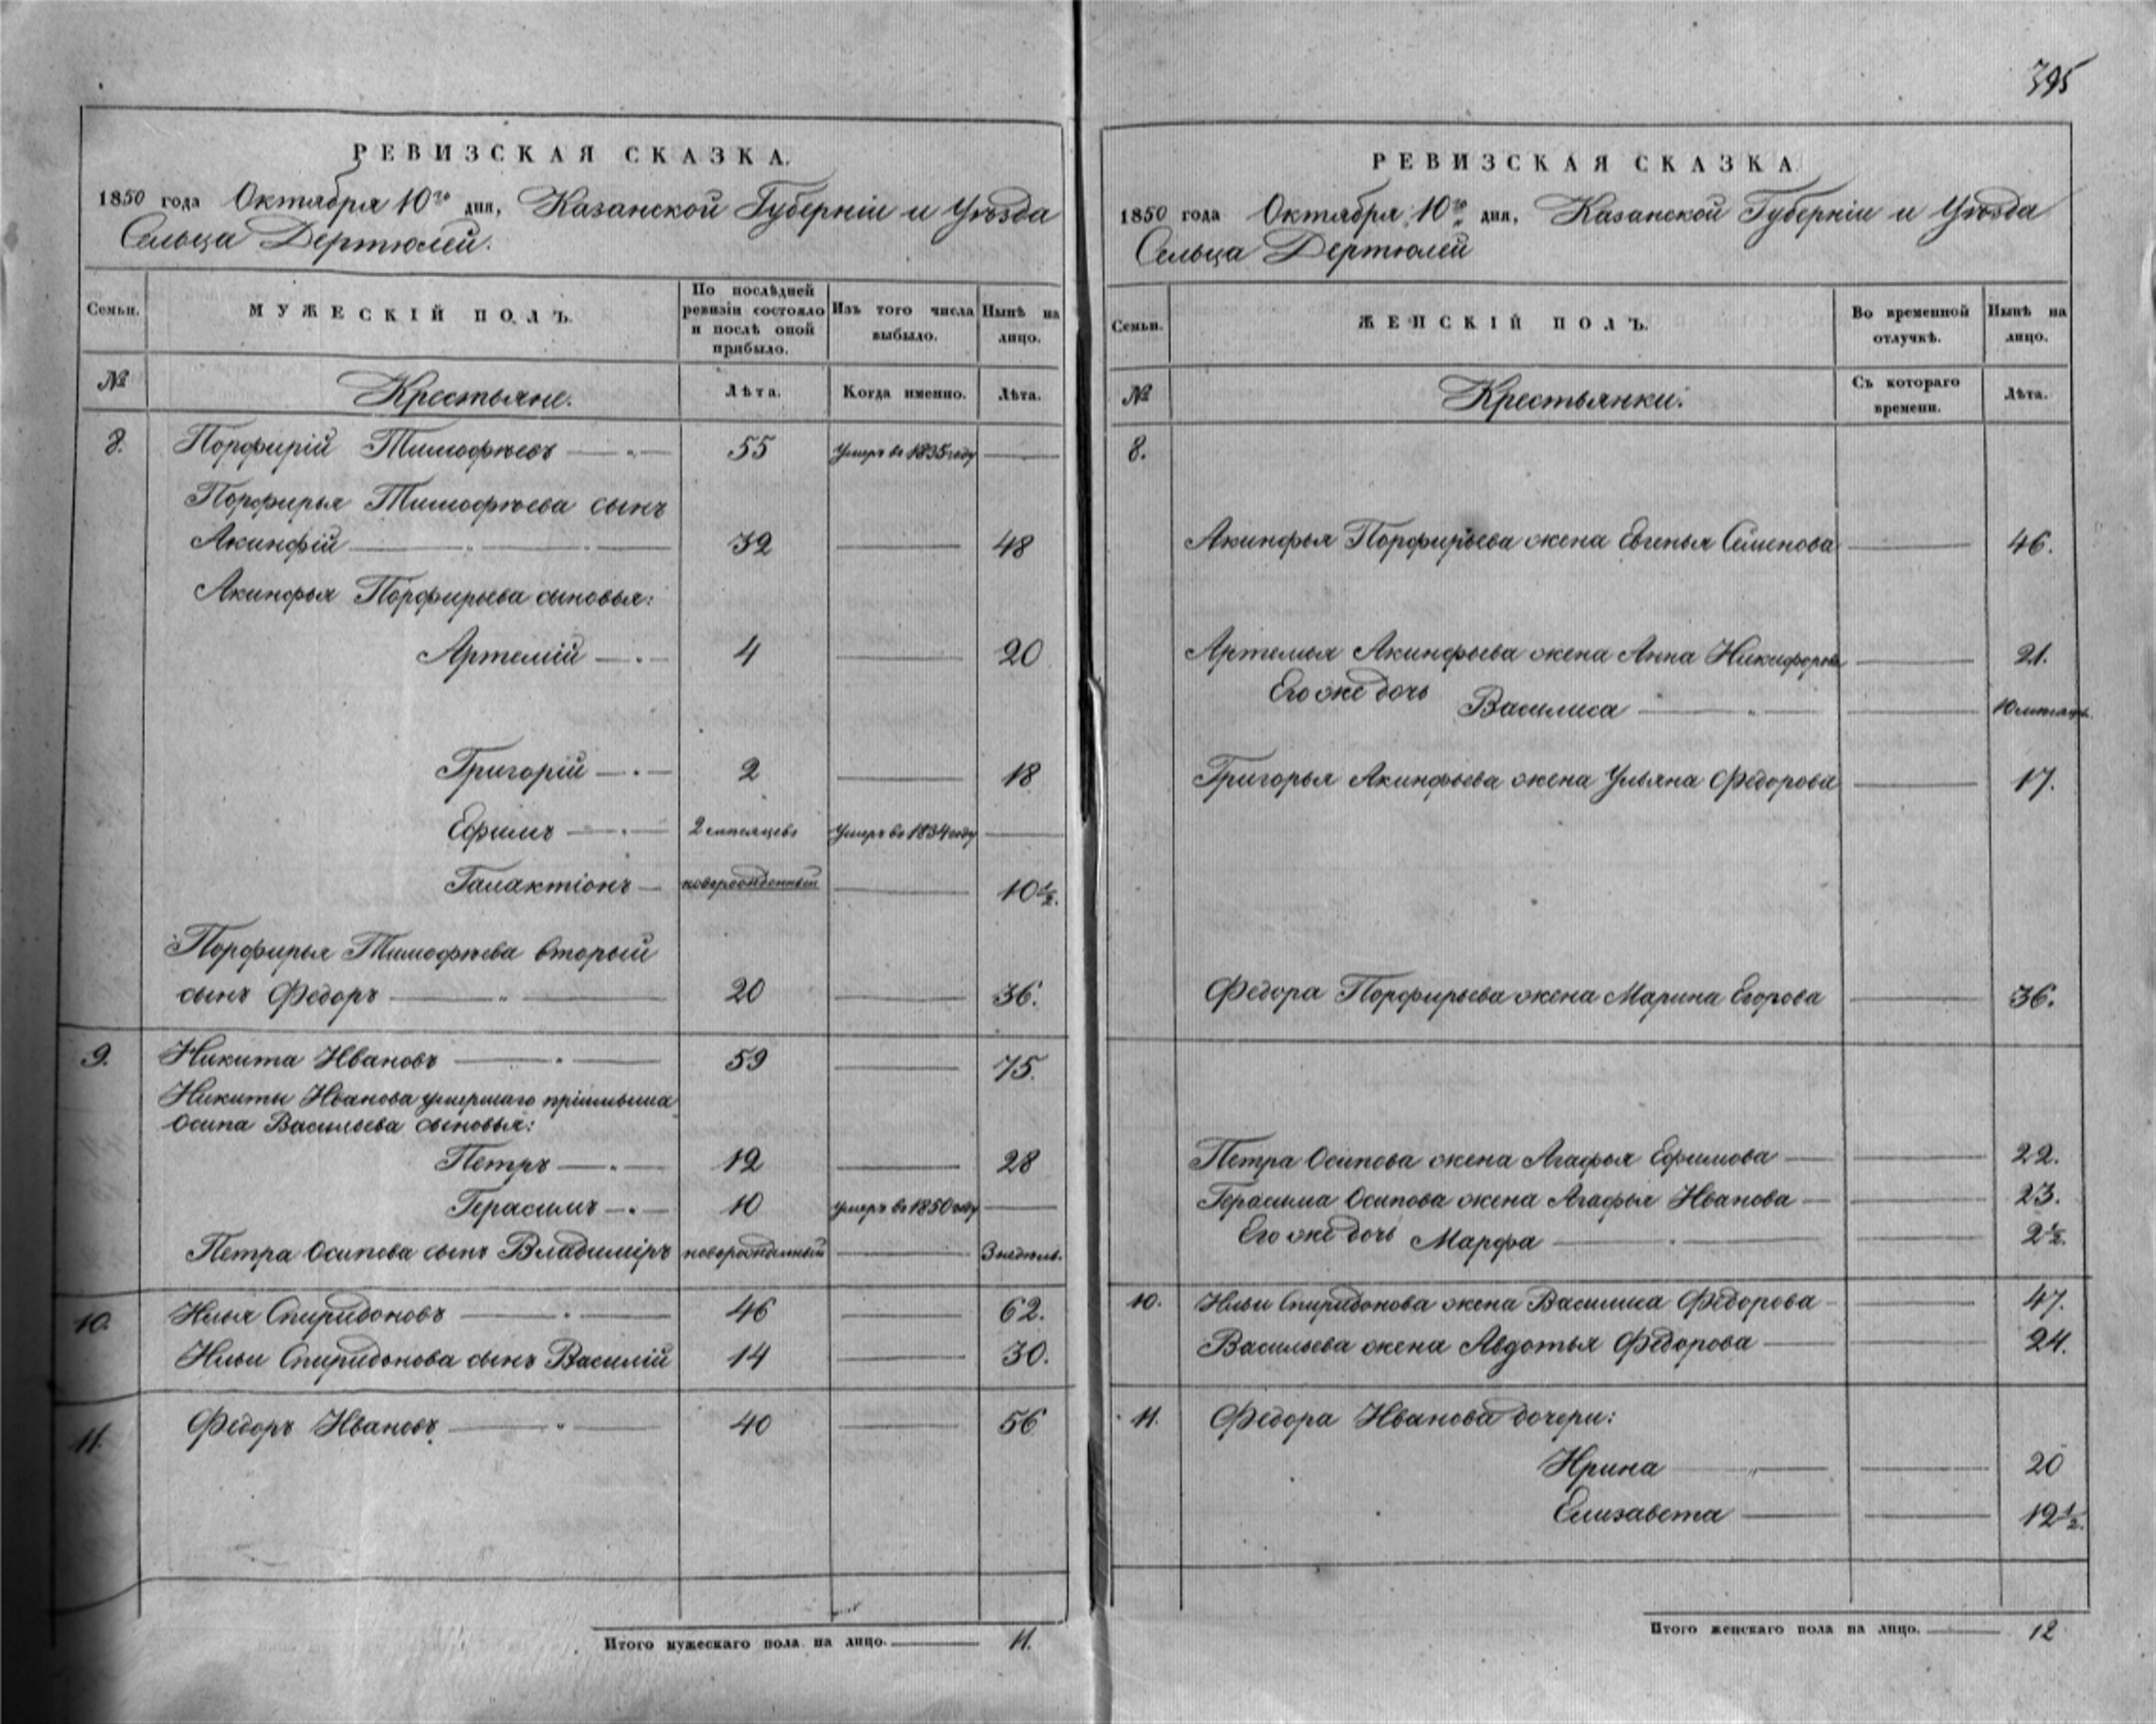 395
РЕВИЗСКАЯ СКАЗКА.
1850 года Октября 10го дня, Казанской Губерніи и Уѣзда
Сельца Дертюлей.
Семьи. МУЖЕСКІЙ ПОЛЪ. По послѣдней ревизіи состояло и послѣ оной прибыло. Изъ того числа выбыло. Нынѣ на лицо.
№ Крестьяне. Лѣта. Когда именно. Лѣта.
8. Порфирій Тимофѣевъ 55 умеръ въ 1835 году
Порфирья Тимофѣева сынъ
Акинфій 32 48
Акинфья Порфирьева сыновья:
Артемій 4 20
Григорій 2 18
Ефимъ умеръ въ 1834 году
Галактіонъ новорожденный 10½.
Порфирья Тимофѣева вторый
сынъ Федоръ 20 36.
9. Никита Ивановъ 59 75.
Никиты Иванова умершаго пріимыша
Осипа Васильева сыновья:
Петръ 12 28
Герасимъ 10 умеръ въ 1850 году
Петра Осипова сынъ Владиміръ новорожденный 3 недѣль.
10. Илья Спиридоновъ 46 62.
Ильи Спиридонова сынъ Василій 14 30.
11. Федоръ Ивановъ 40 56
Итого мужескаго пола на лицо. 11.
РЕВИЗСКАЯ СКАЗКА
1850 года Октября 10го дня, Казанской Губерніи и Уѣзда
Сельца Дертюлей
Семьи. ЖЕНСКІЙ ПОЛЪ. Во временной отлучкѣ. Нынѣ на лицо.
№ Крестьянки. Съ котораго времени. Лѣта.
8.
Акинфья Порфирьева жена Евгенья Семенова 46.
Артемья Акинфьева жена Анна Никифорова 21.
Его же дочь Василиса 10 мѣсяцъ.
Григорья Акинфьева жена Ульяна Федорова 17.
Федора Порфирьева жена Марина Егорова 36.
Петра Осипова жена Агафья Ефимова 22.
Герасима Осипова жена Агафья Иванова 23.
Его же дочь Марфа 2½.
10. Ильи Спиридонова жена Василиса Федорова 47.
Васильева жена Авдотья Федорова 24.
11. Федора Иванова дочери:
Ирина 20
Елизавета 12½.
Итого женскаго пола на лицо. 12